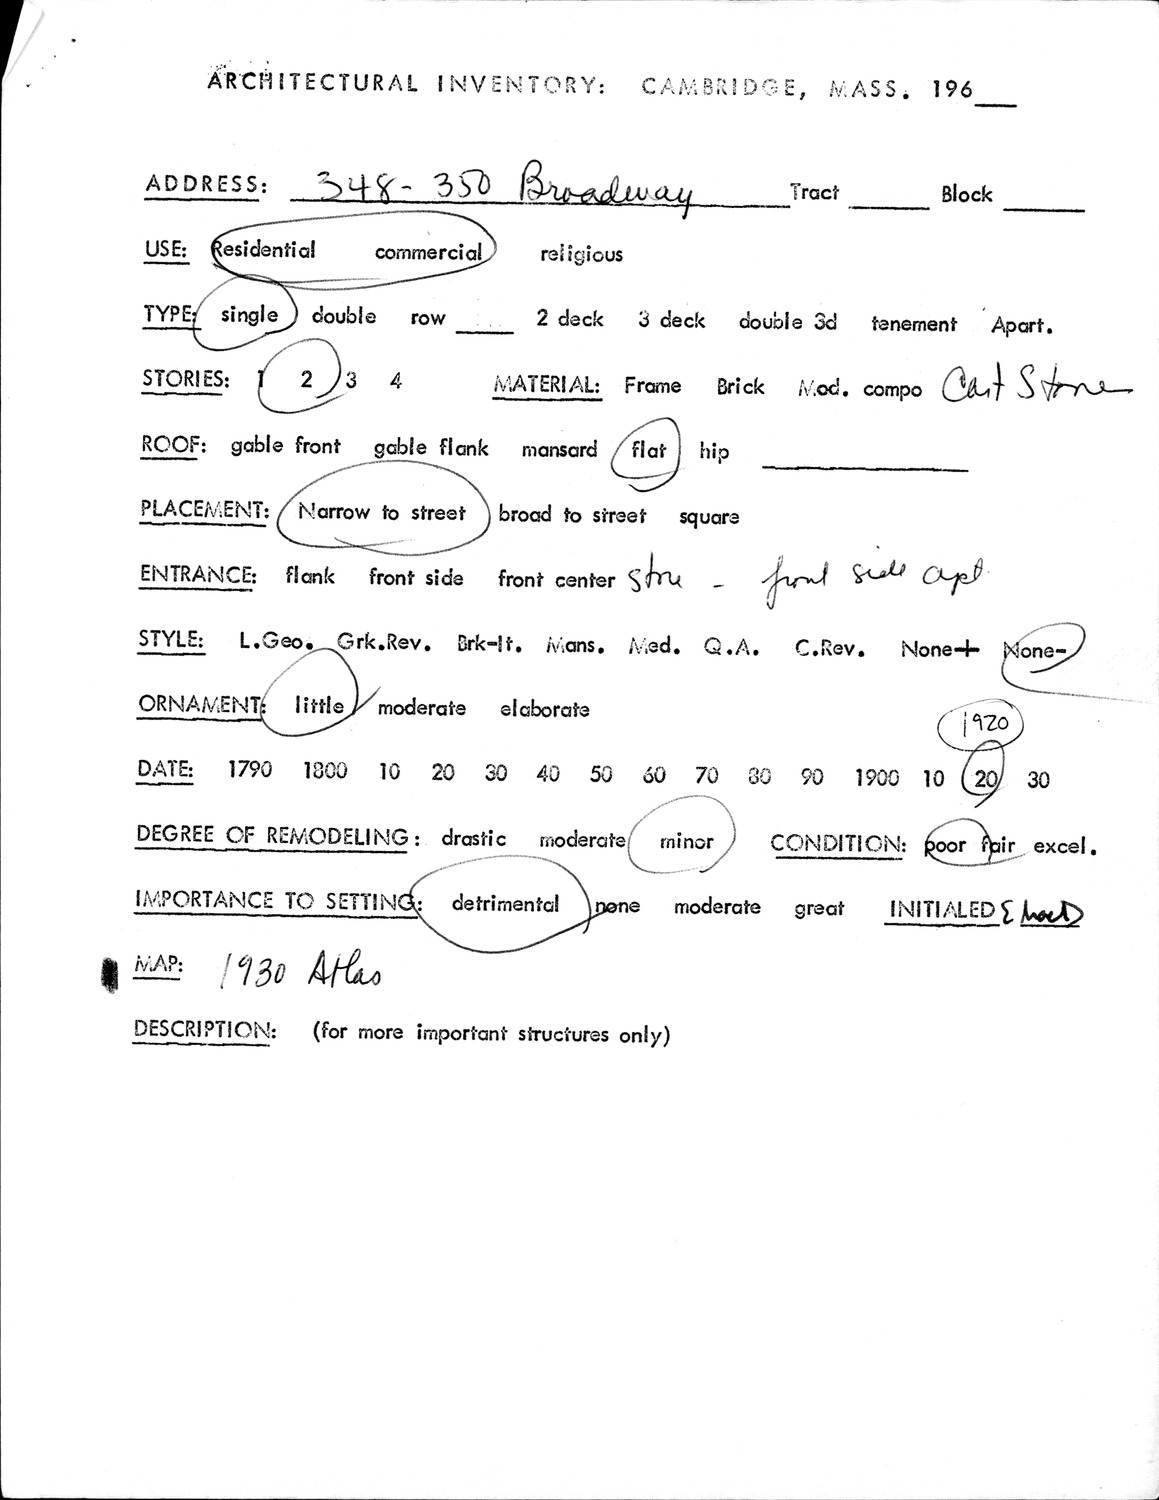 ARCHITECTURAL INVENTORY: CAMBRIDGE, MASS. 196__
ADDRESS: 348-350 Broadway Tract ______ Block ______
USE: Residential commercial religious
TYPE: single double row ____ 2 deck 3 deck double 3d tenement Apart.
STORIES: 1 2 3 4 MATERIAL: Frame Brick Mod. compo Cast Stone
ROOF: gable front gable flank mansard flat hip ______
PLACEMENT: Narrow to street broad to street square
ENTRANCE: flank front side front center store - front side apt.
STYLE: L.Geo. Grk.Rev. Brk-It. Mans. Med. Q.A. C.Rev. None+ None-
ORNAMENT: little moderate elaborate
1920
DATE: 1790 1800 10 20 30 40 50 60 70 80 90 1900 10 20 30
DEGREE OF REMODELING: drastic moderate minor CONDITION: poor fair excel.
IMPORTANCE TO SETTING: detrimental none moderate great INITIALED
MAP: 1930 Atlas
DESCRIPTION: (for more important structures only)